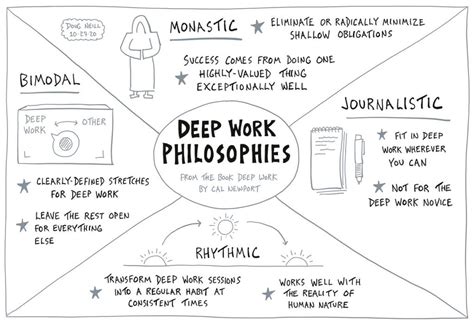 DOUG NEILL
10.27.20
MONASTIC
ELIMINATE OR RADICALLY MINIMIZE
SHALLOW OBLIGATIONS
SUCCESS COMES FROM DOING ONE
HIGHLY-VALUED THING
EXCEPTIONALLY WELL
BIMODAL
DEEP
WORK
OTHER
CLEARLY-DEFINED STRETCHES
FOR DEEP WORK
LEAVE THE REST OPEN
FOR EVERYTHING
ELSE
DEEP WORK
PHILOSOPHIES
FROM THE BOOK DEEP WORK
BY CAL NEWPORT
JOURNALISTIC
FIT IN DEEP
WORK WHEREVER
YOU CAN
NOT FOR THE
DEEP WORK NOVICE
RHYTHMIC
TRANSFORM DEEP WORK SESSIONS
INTO A REGULAR HABIT AT
CONSISTENT TIMES
WORKS WELL WITH
THE REALITY OF
HUMAN NATURE